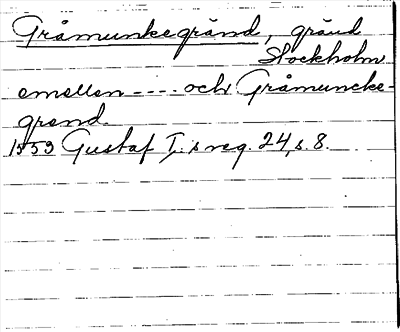 Gråmunkegränd, gränd
Stockholm
emellan ---- och Gråmuncke-
grend.
1553 Gustaf I:s reg. 24, s. 8.